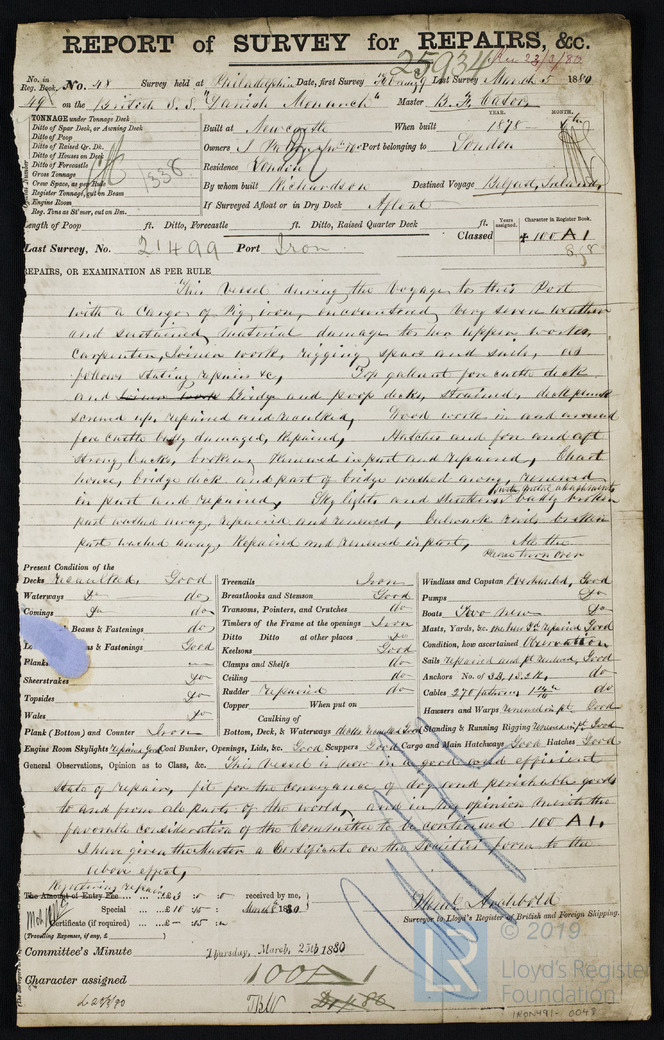 REPORT of SURVEY for REPAIRS, &c.
25934 Rec 22/3/80
No. in Reg. Book. No. 48 Survey held at Philadelphia Date, first Survey February Last Survey March 5 1880
49 on the British S.S. "Danish Monarch" Master
TONNAGE under Tonnage Deck
Ditto of Spar Deck, or Awning Deck
Ditto of Poop
Ditto of Raised Qr. Dk.
Ditto of Houses on Deck
Ditto of Forecastle
Gross Tonnage
Crew Space, as per Rule
Register Tonnage, cut on Beam
Engine Room
Reg. Tons as St'mer, cut on Bm.
1338
YEAR. MONTH.
Built at Newcastle When built 1878
Owners Port belonging to London
Residence London
By whom built Richardson Destined Voyage Belfast, Ireland,
If Surveyed Afloat or in Dry Dock Afloat
Length of Poop ft. Ditto, Forecastle ft. Ditto, Raised Quarter Deck ft.
Years assigned. Character in Register Book.
Classed + 100 A 1
8,78
Last Survey, No. 21499 Port Iron
REPAIRS, OR EXAMINATION AS PER RULE
This Vessel during the Voyage to this Port
with a Cargo of Pig iron, encountered very severe weather
and sustained material damage to her upper works,
Carpenter, Joiner work, rigging spars and sails, as
follows stating repairs &c, Top gallant fore castle deck
and Joiner work Bridge and poop decks, strained, deck planks
screwed up, repaired and recaulked, Wood work in and around
fore castle badly damaged, Repaired, Hatches and fore and aft
strong backs, broken, Renewed in part and repaired, Chart
house, bridge deck and part of bridge washed away, renewed
in part and repaired, Sky lights and badly broken
part washed away, repaired and renewed, Bulwark rails broken
part washed away, Repaired and renewed in part, All the
Please turn over
Present Condition of the
Decks recaulked, Good
Waterways Do do
Comings Do do
Beams & Fastenings do
& Fastenings Good
Planks
Sheerstrakes Do
Topsides Do
Wales Do
Plank (Bottom) and Counter Iron
Treenails Iron
Breasthooks and Stemson Good
Transoms, Pointers, and Crutches do
Timbers of the Frame at the openings Iron
Ditto Ditto at other places Do
Keelsons Good
Clamps and Shelfs do
Ceiling do
Rudder repaired do
Copper When put on
Caulking of
Bottom, Deck, & Waterways decks recaulked Good
Windlass and Capstan Overhauled, Good
Pumps Do
Boats Two new Do
Masts, Yards, &c. repaired Good
Condition, how ascertained Observation
Sails repaired and pt renewed, Good
Anchors No. of do
Cables 270 fathoms do
Hawsers and Warps renewed in pt Good
Standing & Running Rigging renewed in pt Good
Engine Room Skylights repaired Good Coal Bunker, Openings, Lids, &c. Good Scuppers Good Cargo and Main Hatchways Good Hatches Good
General Observations, Opinion as to Class, &c. This Vessel is now in a good and efficient
State of repair, fit for the conveyance of dry and perishable goods
to and from all parts of the world, and in my opinion merits the
favorable consideration of the Committee to be continued 100 A 1,
I have given the Master a Certificate on the Societies form to the
above effect,
The Amount of Entry Fee
received by me,
Special £10
March 8 1880
Certificate (if required)
(Travelling Expenses, if any, £ )
Archbold
Surveyor to Lloyd's Register of British and Foreign Shipping.
Committee's Minute Thursday, March, 25th 1880
Character assigned 100 A 1
LR
© 2019
Lloyd's Register
Foundation
IRON491-0048